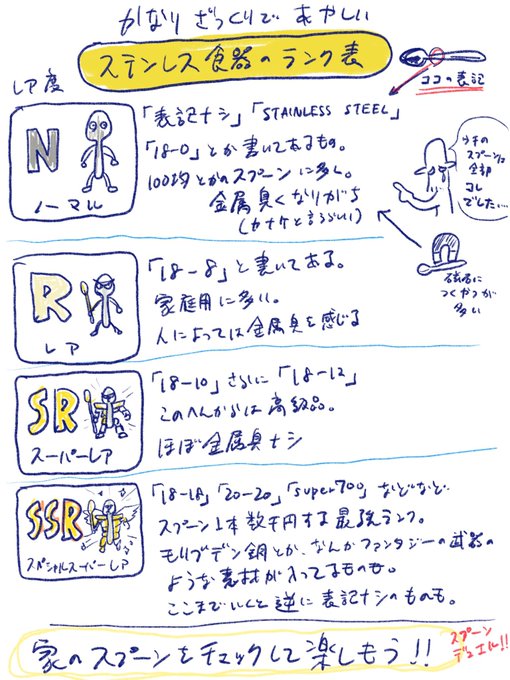 かなりざっくりであやしい
ステンレス食器のランク表
ココの表記
レア度
N
ノーマル
「表記ナシ」「STAINLESS STEEL」
「18-0」とか書いてあるもの。
100均とかのスプーンに多く。
金属臭くなりがち
(カナケと言うらしい)
ウチの
スプーンは
全部
コレ
でした…
磁石に
つくやつが
多い
R
レア
「18-8」と書いてある。
家庭用に多い。
人によっては金属臭を感じる
SR
スーパーレア
「18-10」さらに「18-12」
このへんからは高級品。
ほぼ金属臭ナシ
SSR
スペシャルスーパーレア
「18-18」「20-20」「super700」などなど
スプーン1本数千円する最強ランク。
モリブデン鋼とか、なんかファンタジーの武器の
ような素材が入ってるものも。
ここまでいくと逆に表記ナシのものも。
家のスプーンをチェックして楽しもう!!
スプーン
デュエル!!